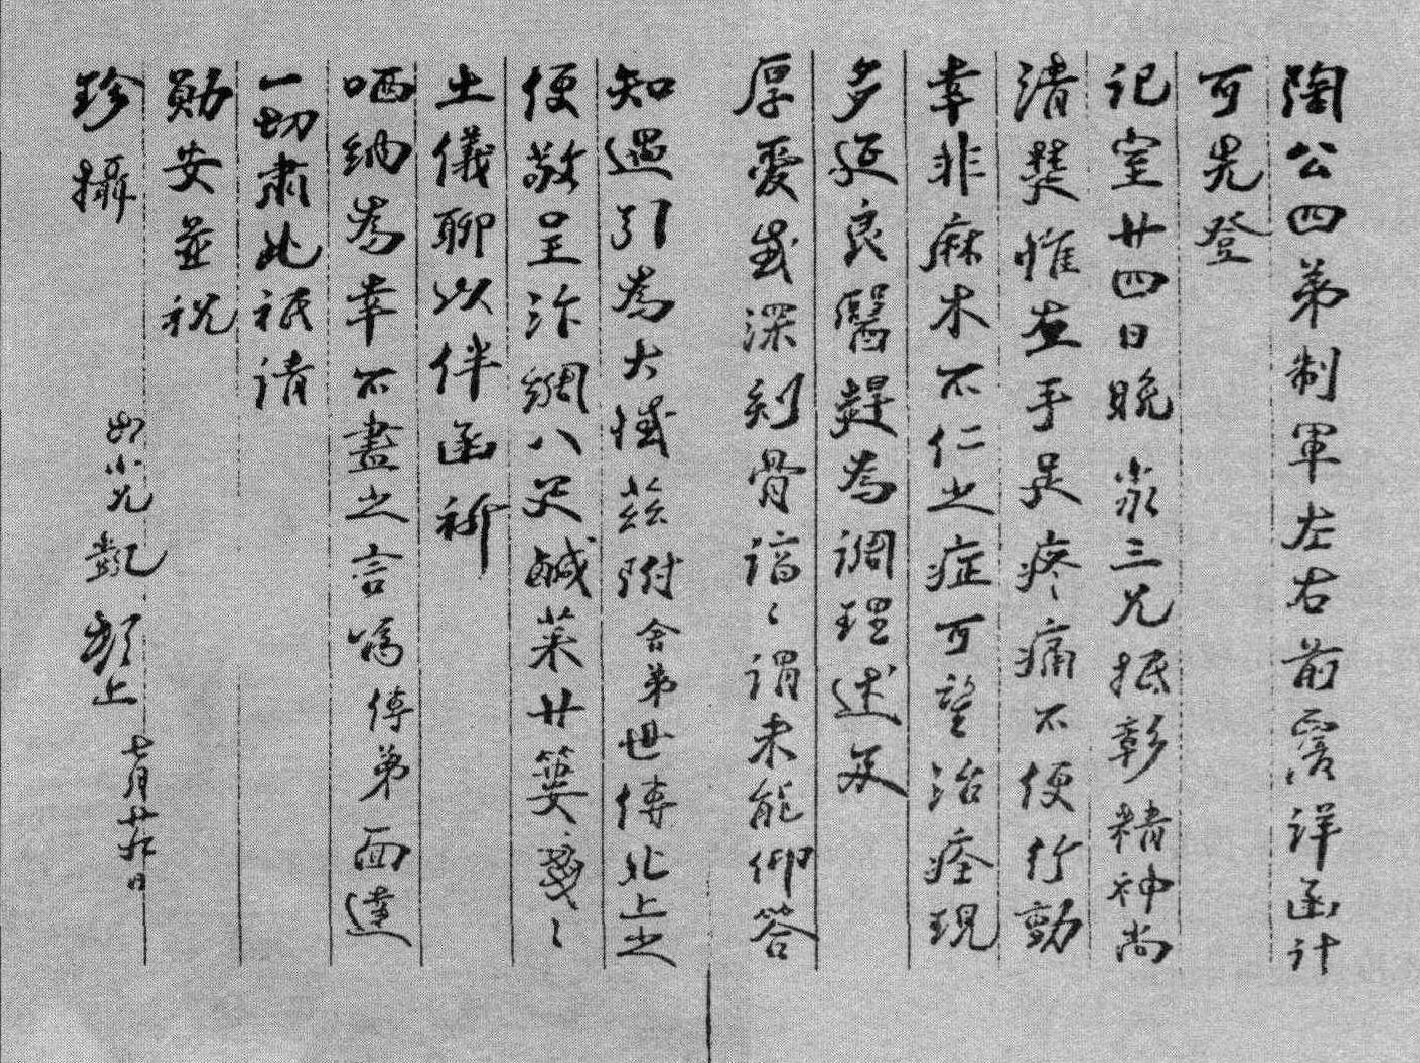 陶公四弟制軍左右前覆詳函計
可先登
記室廿四日晚 家三兄抵彰精神尚
清楚惟左手足疼痛不便行動
幸非麻木不仁之症可望治痊現
多延良醫趕為調理述及
厚愛感深刻骨諄〻謂未能仰答
知遇引為大憾茲附舍弟世傳北上之
便敬呈汴綢八疋鹹菜廿簍戔〻
土儀聊以伴函祈
哂納為幸不盡之言馮傅弟面達
一切肅此祗請
勛安並祝
珍攝
如小兄凱頓上 七月廿九日